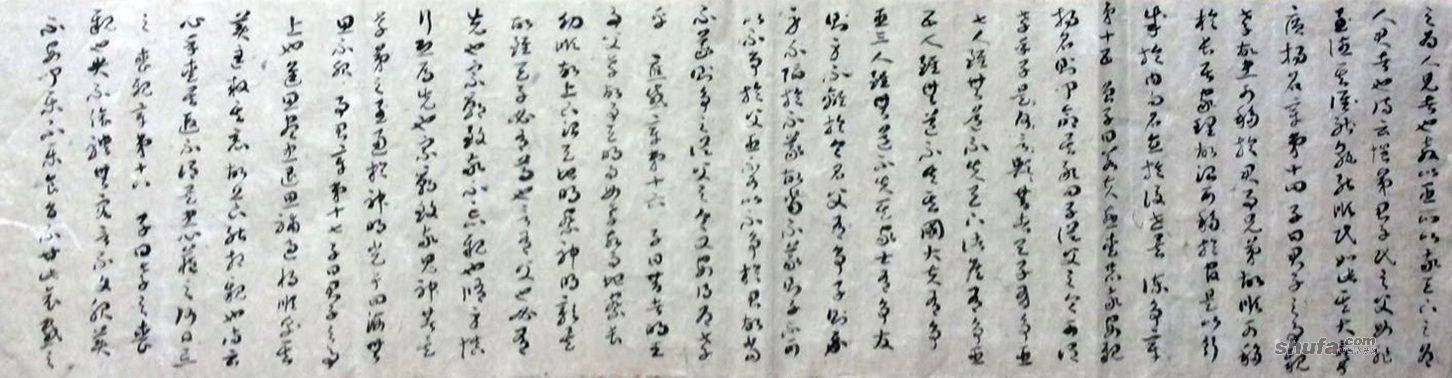 之為人兄者也教以臣所以敬天下之為
人君者也詩云愷弟君子民之父母非
至德其孰能順民如此其大者乎
廣揚名章第十四子曰君子之事親
孝故忠可移於君事兄弟故順可移
於長居家理故治可移於官是以行
成於內而名立於後世矣諫爭章
第十五曾子曰若夫慈愛恭敬安親
揚名則聞命矣敢問子從父之令可謂
孝乎子曰是何言歟昔者天子有爭臣
七人雖無道不失天下諸侯有爭臣
五人雖無道不失其國大夫有爭
臣三人雖無道不失其家士有爭友
則身不離於令名父有爭子則
身不陷於不義故當不義則子不可
以不爭於父臣不可以不爭於君故當
不義則爭之從父之令又焉得為孝
乎應感章第十六子曰昔者明王
事父孝故事天明事母孝故事地察長
幼順故上下治天地明察神明彰矣
故雖天子必有尊也言有父也必有
先也宗廟致敬不忘親也脩身慎
行恐辱先也宗廟致敬鬼神著矣
孝弟之至通於神明光于四海無
思不服事君章第十七子曰君子之事
上也進思盡忠退思補過將順其美
匡救其惡故上下能相親也詩云
心乎愛矣遐不謂矣忠心藏之何日忘
之喪親章第十八子曰孝子之喪
親也哭不依禮無容言不文服美
不安聞樂不樂食旨不甘此哀慼之
shufa.com